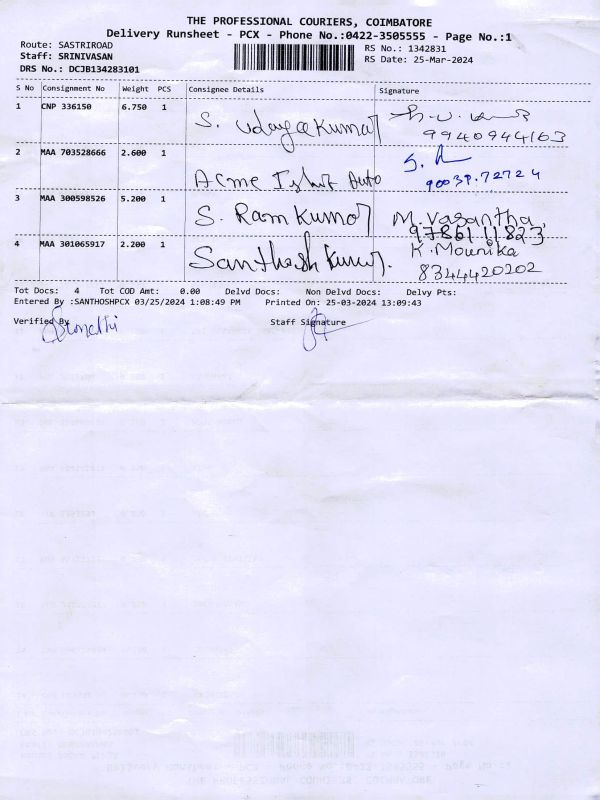 THE PROFESSIONAL COURIERS, COIMBATORE
Delivery Runsheet - PCX - Phone No.:0422-3505555 - Page No.:1
Route: SASTRIROAD
RS No.: 1342831
Staff: SRINIVASAN
RS Date: 25-Mar-2024
DRS No.: DCJB134283101
S No Consignment No Weight PCS Consignee Details Signature
1 CNP 336150 6.750 1 S. Udayakumar
9940944163
2 MAA 703528666 2.600 1 Acme Auto
3 MAA 300598526 5.200 1 S. Ram Kumar M. Vasantha
97861 11823
4 MAA 301065917 2.200 1 Santhosh Kumar. K. Mounika
8344420202
Tot Docs: 4 Tot COD Amt: 0.00 Delvd Docs: Non Delvd Docs: Delvy Pts:
Entered By :SANTHOSHPCX 03/25/2024 1:08:49 PM Printed On: 25-03-2024 13:09:43
Verified By Staff Signature